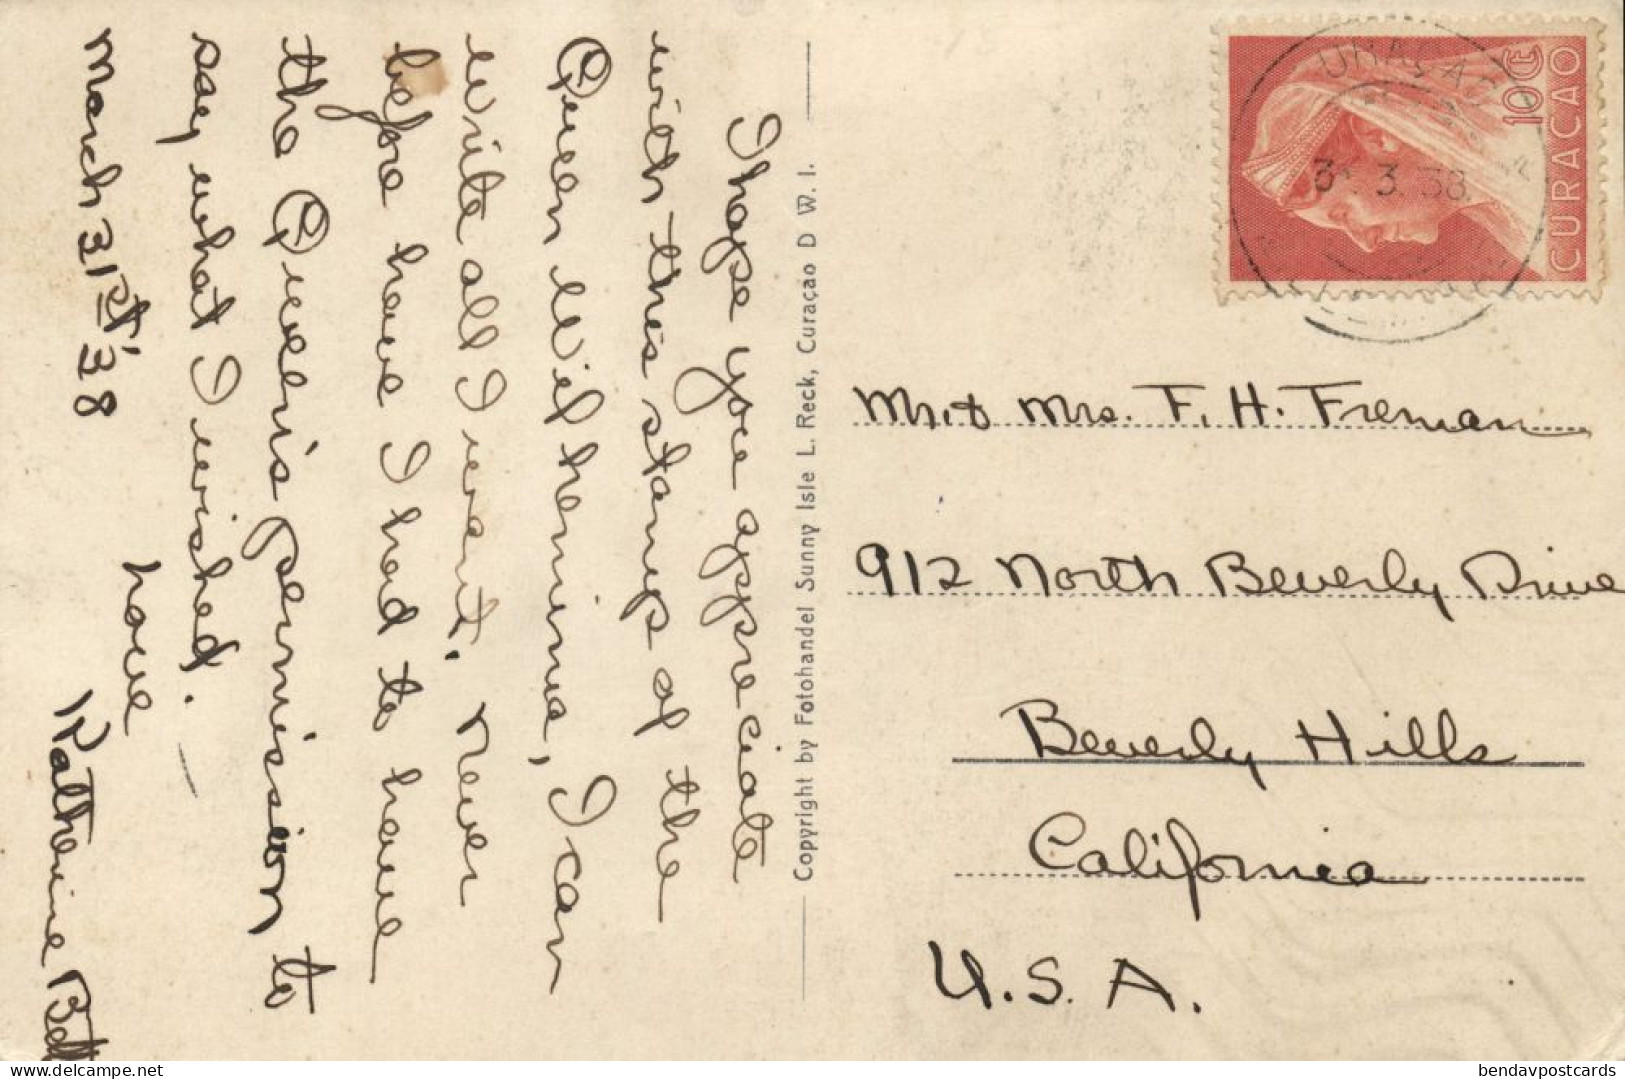 I hope you appreciate
with this stamp of the
Queen Wilhemina, I can
write all I want. Never
before have I had to have
the Queen's permission to
say what I wished.
March 31st '38
Love
Katherine
Copyright by Fotohandel Sunny Isle L. Reck, Curaçao D W. I.
10 C
CURACAO
3. 38
Mr. & Mrs. F. H. Freman
912 North Beverly Drive
Beverly Hills
California
U.S.A.
delcampe.net
bendavpostcards